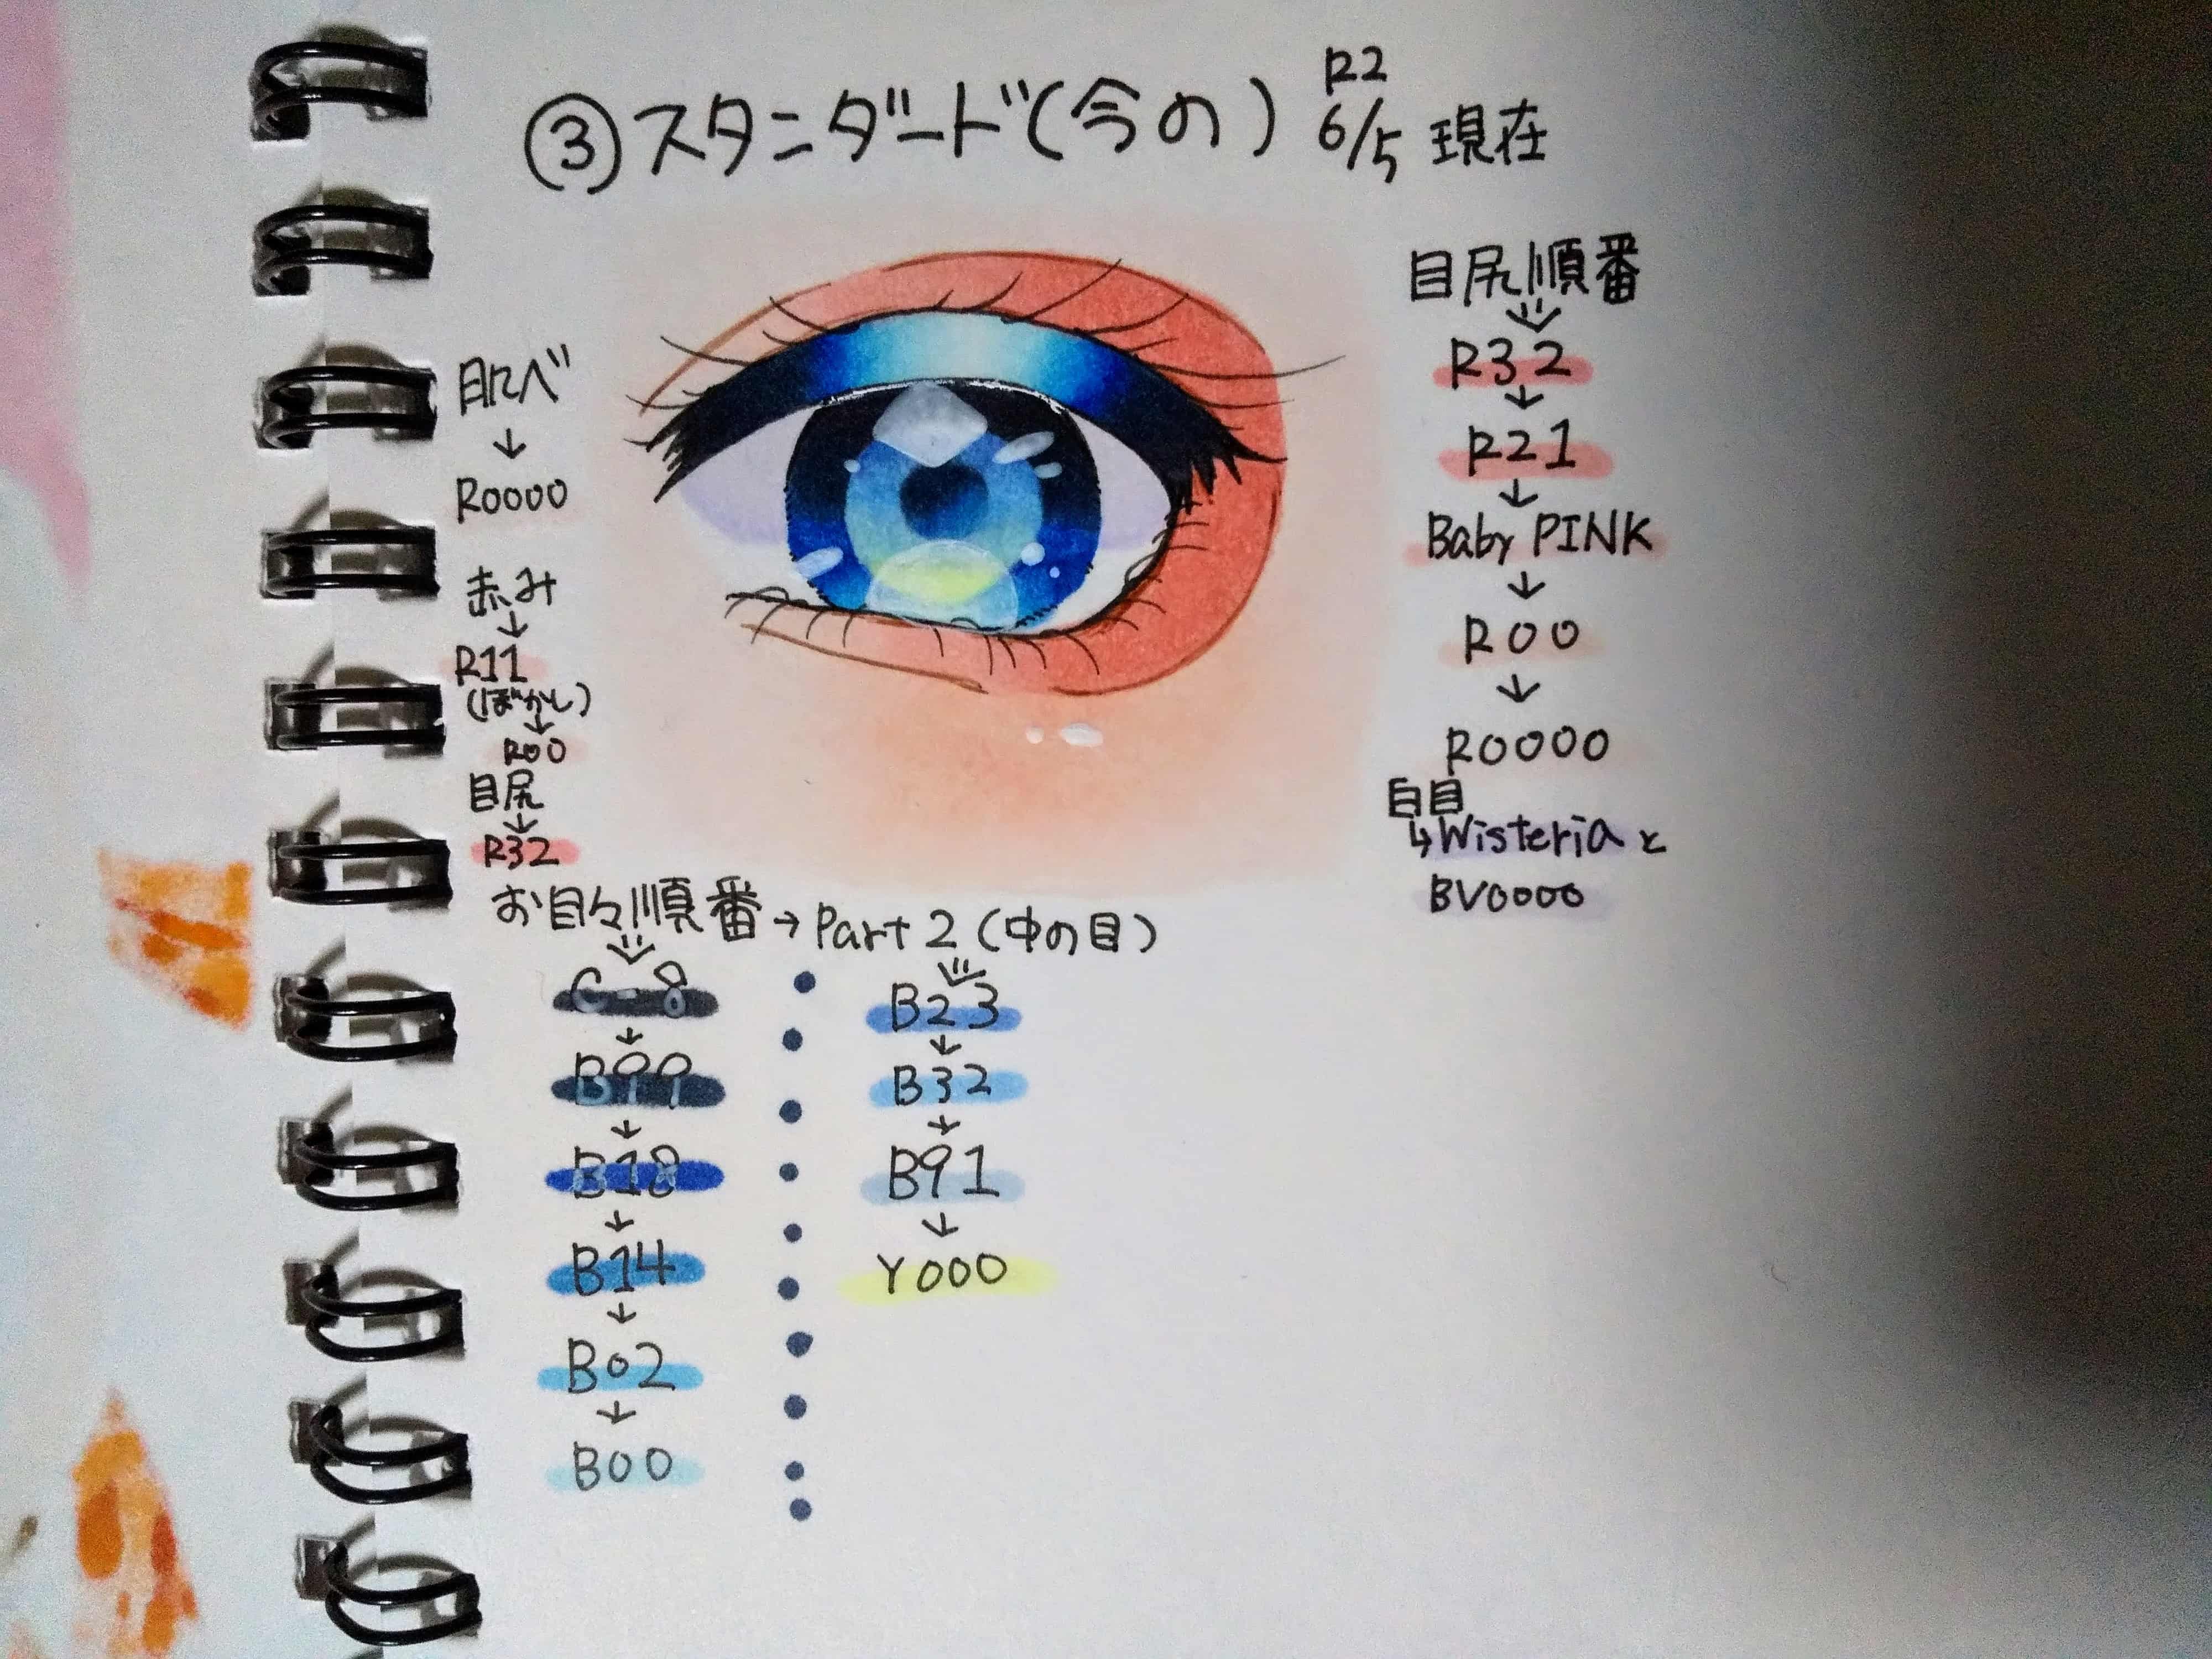 ③スタンダード(今の) R2
6/5 現在
肌べ
↓
R0000
赤み
↓
R11
(ぼかし)
↓
R00
目尻
↓
R32
目尻順番
⇓
R32
↓
R21
↓
Baby PINK
↓
R00
↓
R0000
白目
↳Wisteriaと
BV0000
お目々順番→Part2(中の目)
⇓
C-8
↓
B99
↓
B18
↓
B14
↓
B02
↓
B00
⇓
B23
↓
B32
↓
B91
↓
Y000